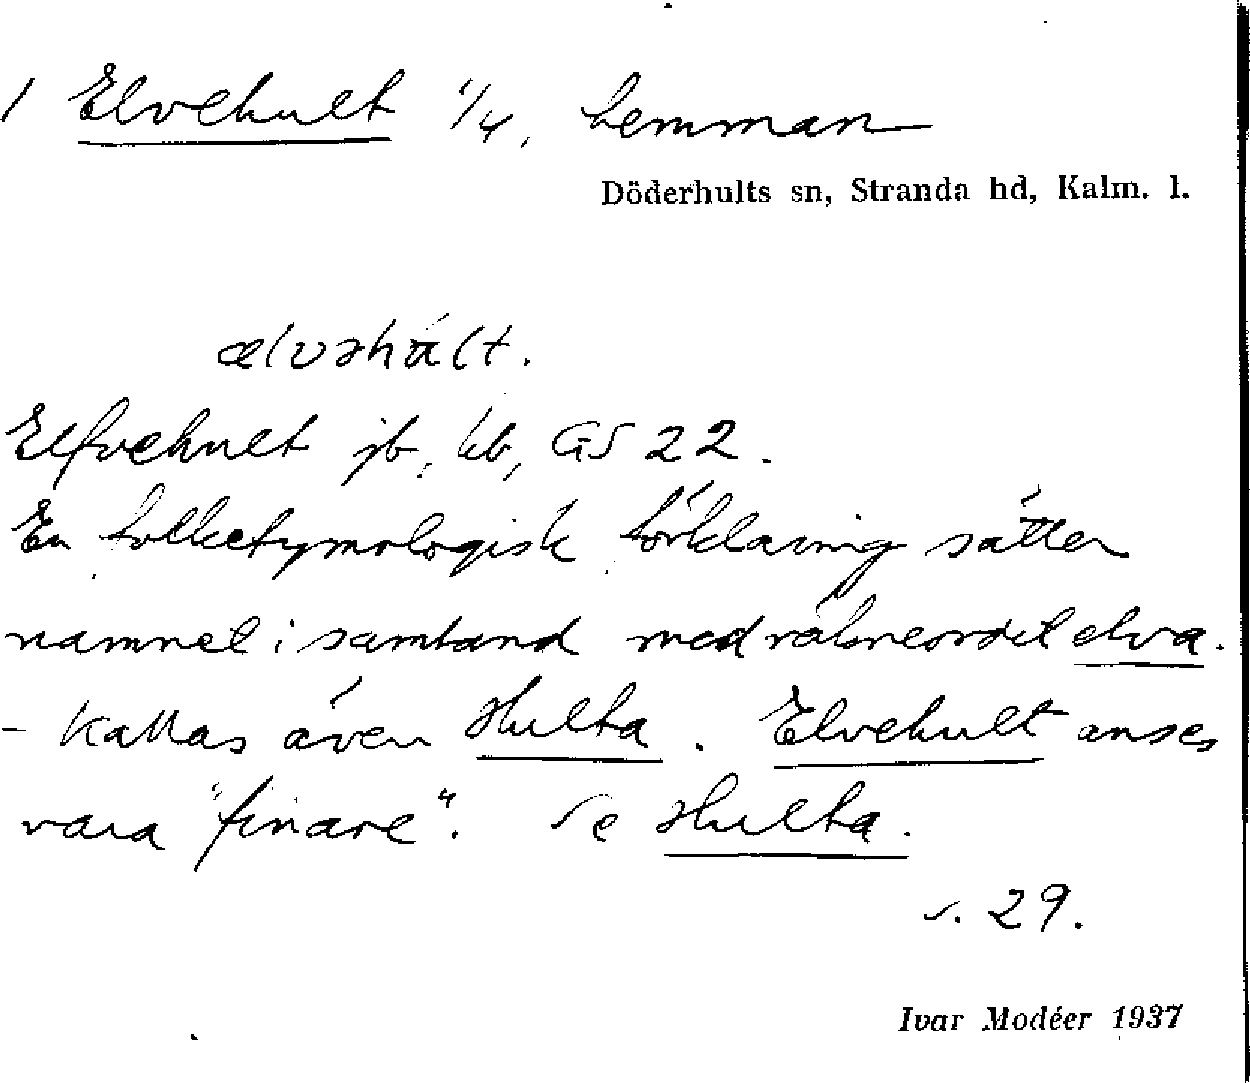 1 Elvehult 1/4, hemman
Döderhults sn, Stranda hd, Kalm. l.
ælvəhált.
Elfvehult jb, kb, GS 22.
En folketymologisk förklaring sätter
namnet i samband med räkneordet elva.
- Kallas även Hulta. Elvehult anses
vara "finare". Se Hulta.
s. 29.
Ivar Modéer 1937